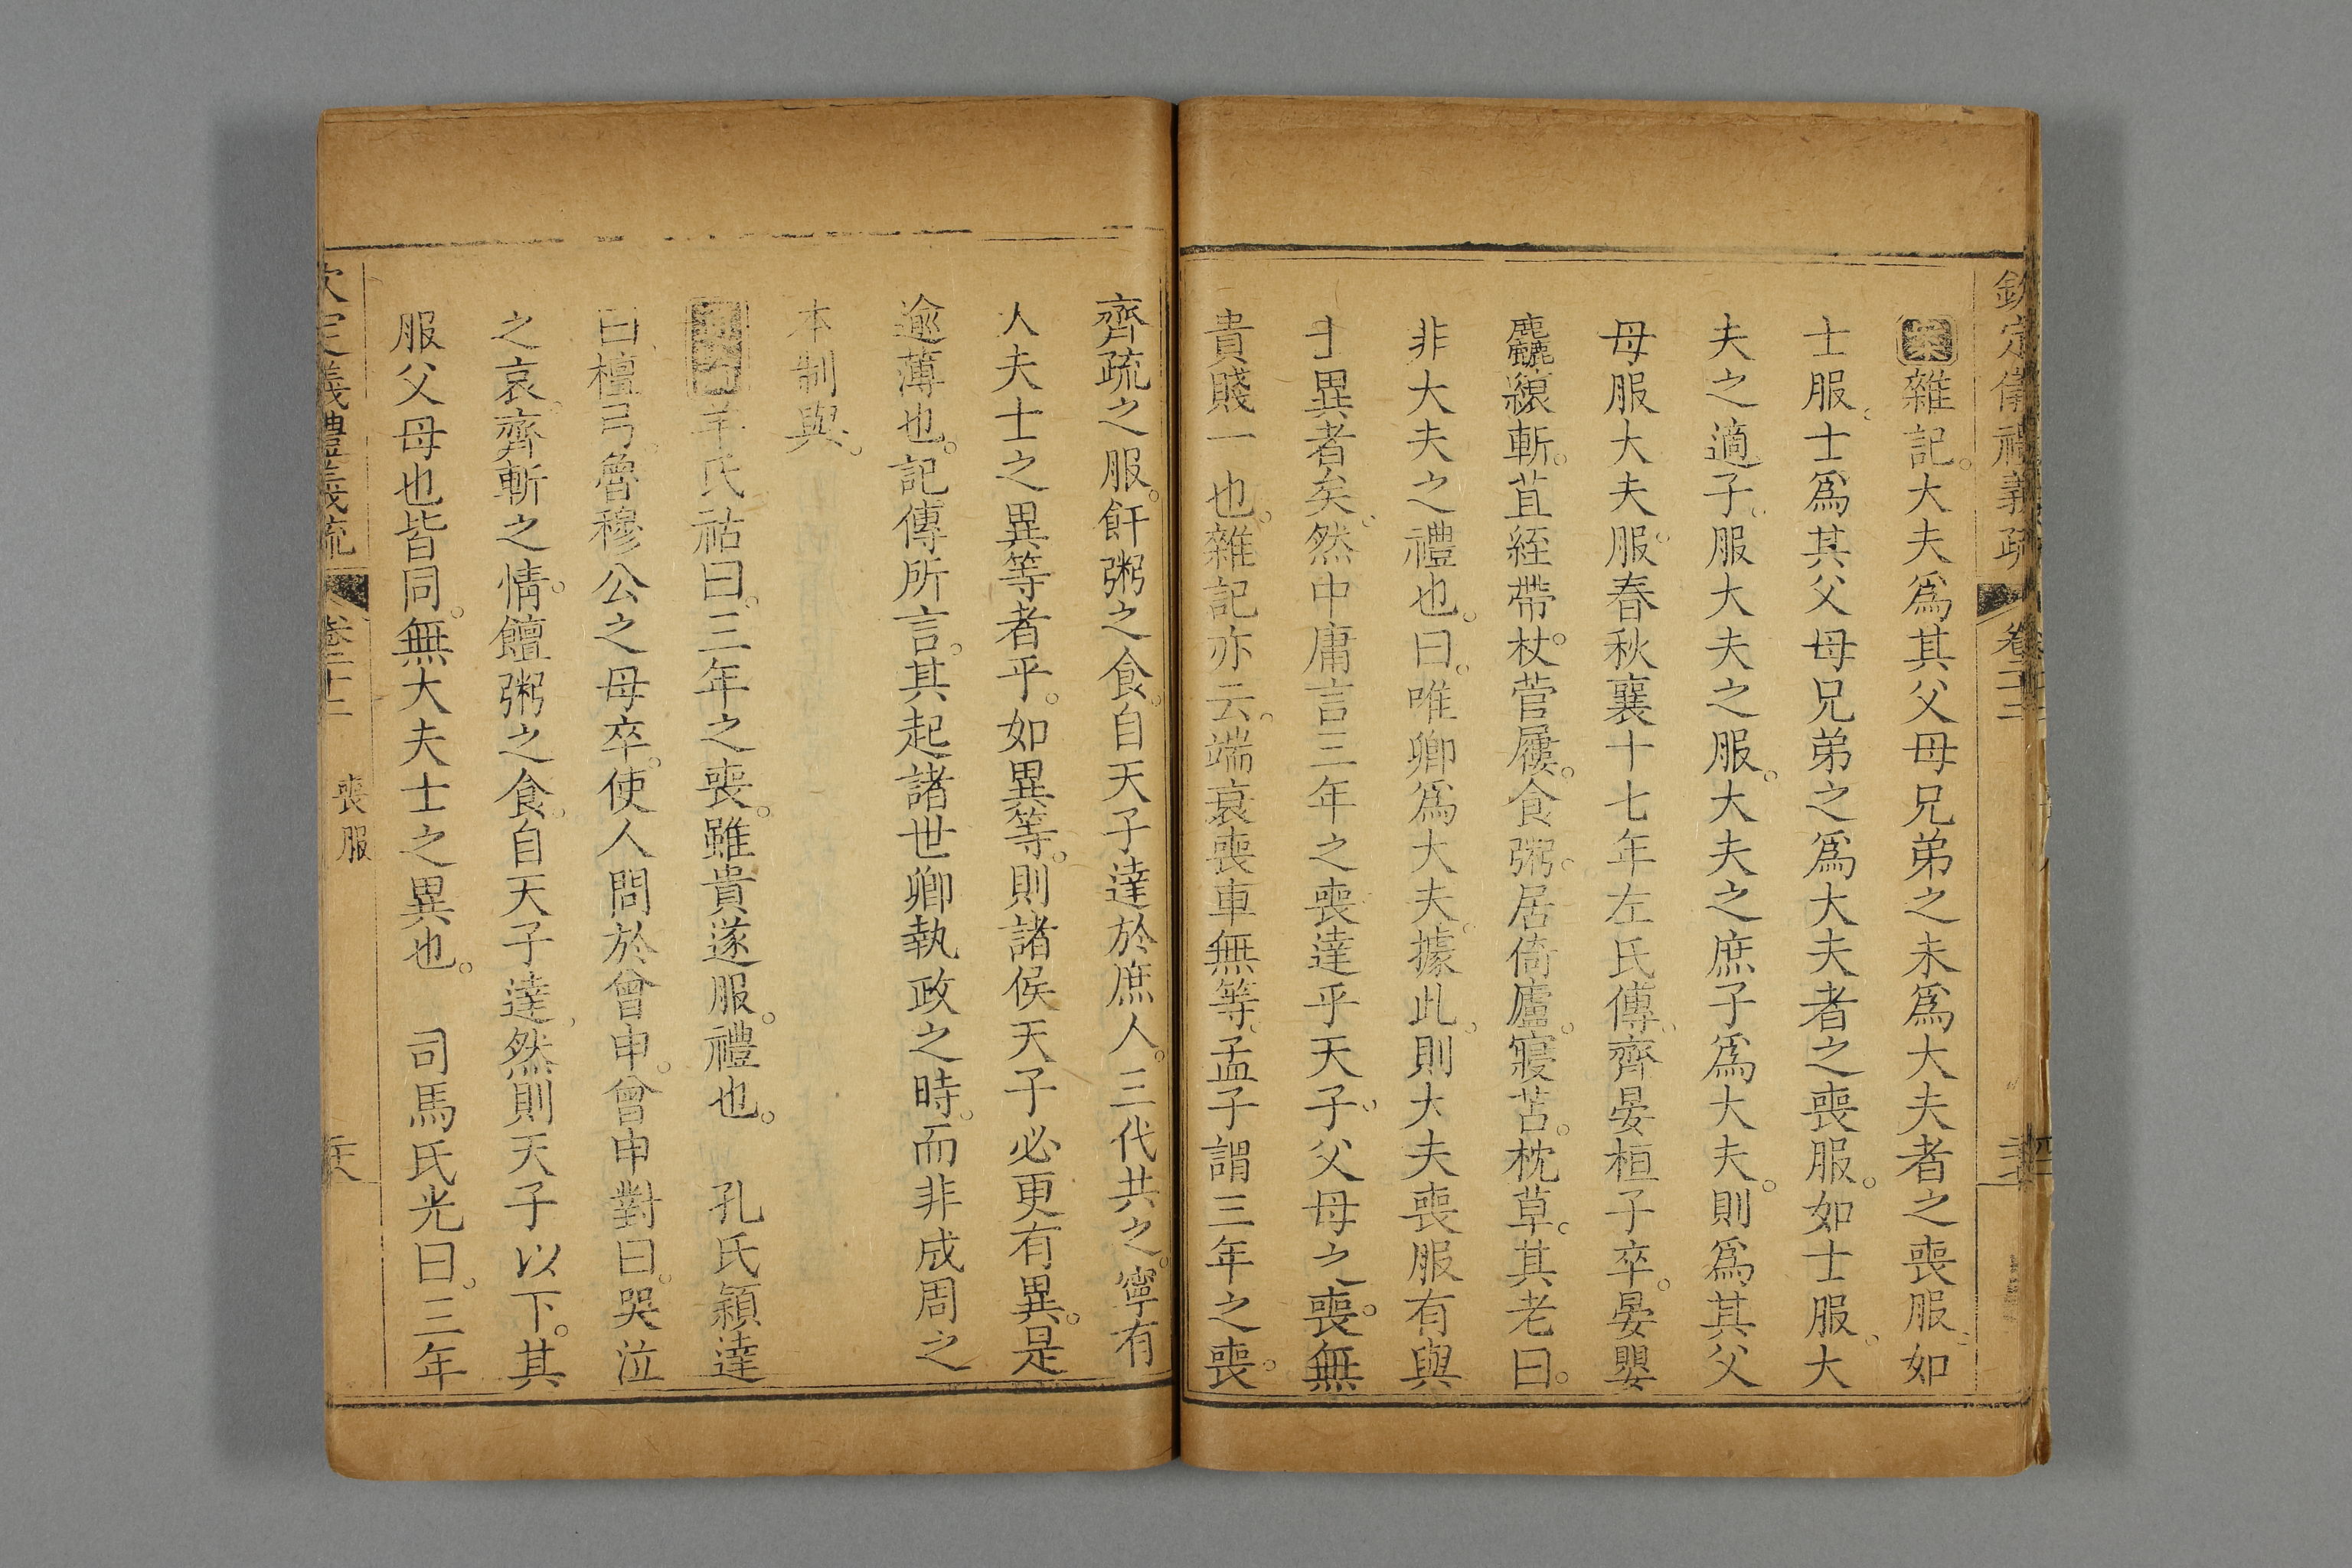 欽定儀禮義疏 卷二十二
案雜記。大夫爲其父母兄弟之未爲大夫者之喪服。如
士服。士爲其父母兄弟之爲大夫者之喪服。如士服。大
夫之適子。服大夫之服。大夫之庶子爲大夫。則爲其父
母服大夫服。春秋襄十七年左氏傳。齊晏桓子卒。晏嬰
麤縗斬。苴絰帶杖。菅屨。食粥。居倚廬。寢苫。枕草。其老曰。
非大夫之禮也。曰。唯卿爲大夫。據此。則大夫喪服有與
士異者矣。然中庸言三年之喪達乎天子。父母之喪。無
貴賤一也。雜記亦云。端衰喪車無等。孟子謂三年之喪。
齊疏之服。飦粥之食。自天子達於庶人。三代共之。寧有
大夫士之異等者乎。如異等。則諸侯天子必更有異。是
逾薄也。記傳所言。其起諸世卿執政之時。而非成周之
本制與。
羊氏祜曰。三年之喪。雖貴遂服。禮也。 孔氏穎達
曰檀弓。魯穆公之母卒。使人問於曾申。曾申對曰。哭泣
之哀。齊斬之情。饘粥之食。自天子達。然則天子以下。其
服父母也皆同。無大夫士之異也。 司馬氏光曰。三年
欽定儀禮義疏 卷二十二 喪服